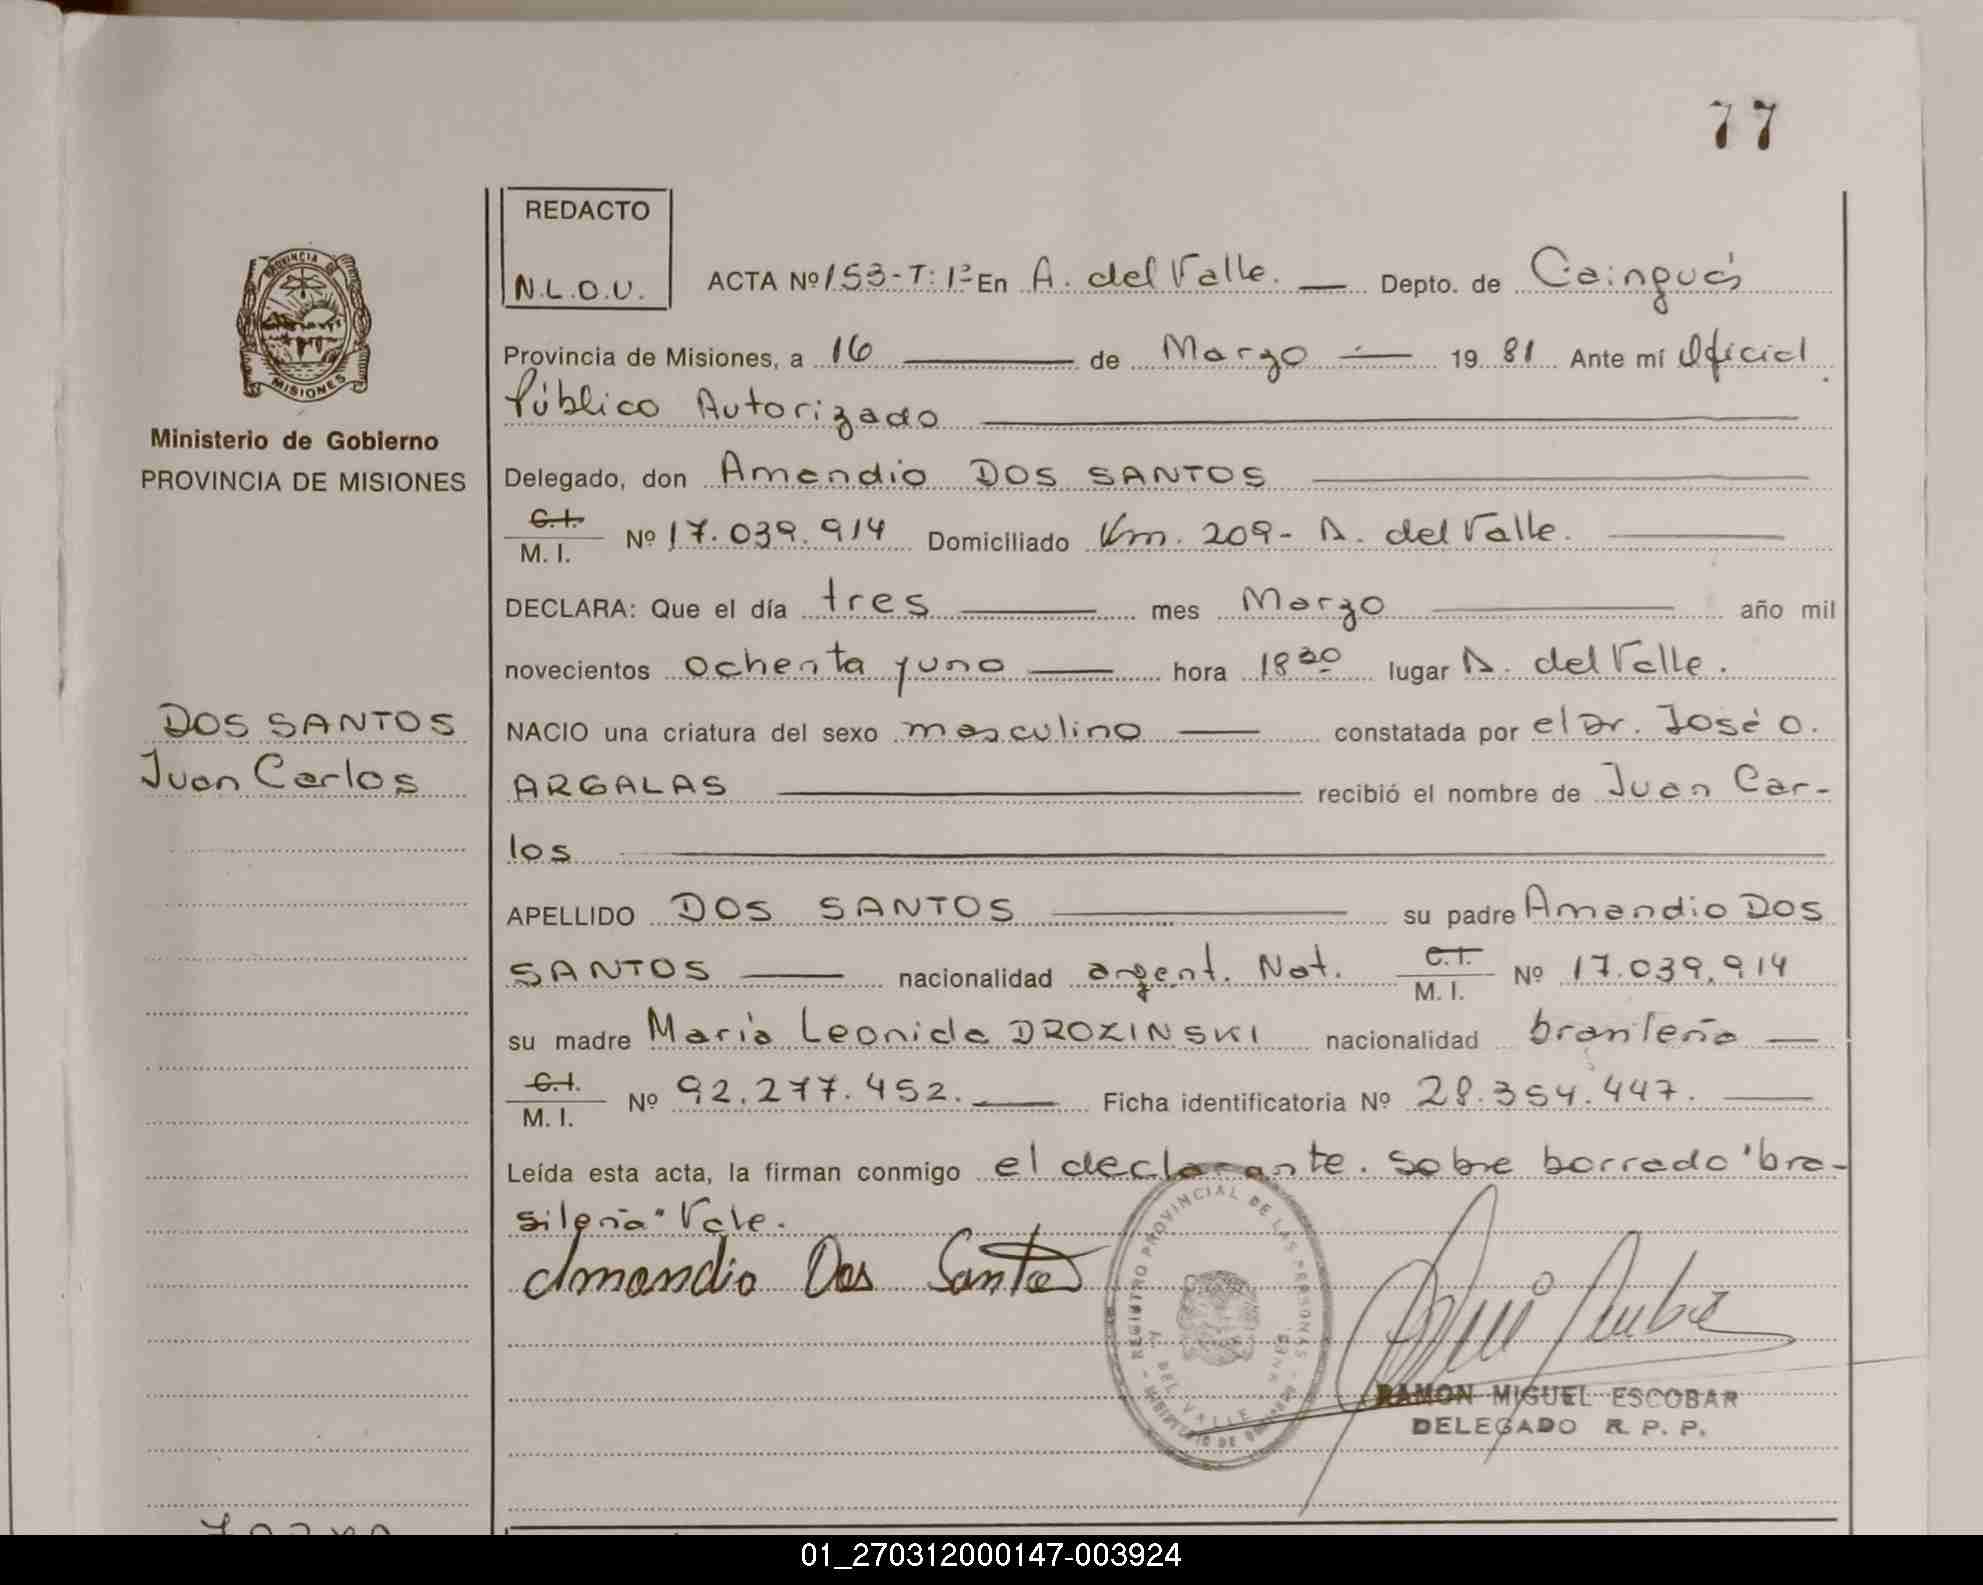 77
REDACTO
N.L.O.U.
PROVINCIA DE
MISIONES
Ministerio de Gobierno
PROVINCIA DE MISIONES
ACTA Nº 153-T: 1º En A. del Valle. — Depto. de Cainguás
Provincia de Misiones, a 16 — de Marzo — 1981 Ante mí Oficial
Público Autorizado
Delegado, don Amandio DOS SANTOS
C.I.
M. I. Nº 17.039.914 Domiciliado Km. 209- A. del Valle.
DECLARA: Que el día tres — mes Marzo — año mil
novecientos ochenta y uno — hora 18 30 lugar A. del Valle.
NACIO una criatura del sexo masculino — constatada por el Dr. José O.
ARGALAS — recibió el nombre de Juan Car-
los
APELLIDO DOS SANTOS — su padre Amandio DOS
SANTOS — nacionalidad argent. Nat. C.I.
M. I. Nº 17.039.914
su madre María Leonida DROZINSKI nacionalidad brasileña —
C.I.
M. I. Nº 92.277.452. — Ficha identificatoria Nº 28.354.447. —
Leída esta acta, la firman conmigo el declarante. Sobre borrado "bra-
sileña" Vale.
Amandio Dos Santos
DOS SANTOS
Juan Carlos
REGISTRO PROVINCIAL DE LAS PERSONAS
DEL VALLE
RAMON MIGUEL ESCOBAR
DELEGADO R. P. P.
01_270312000147-003924